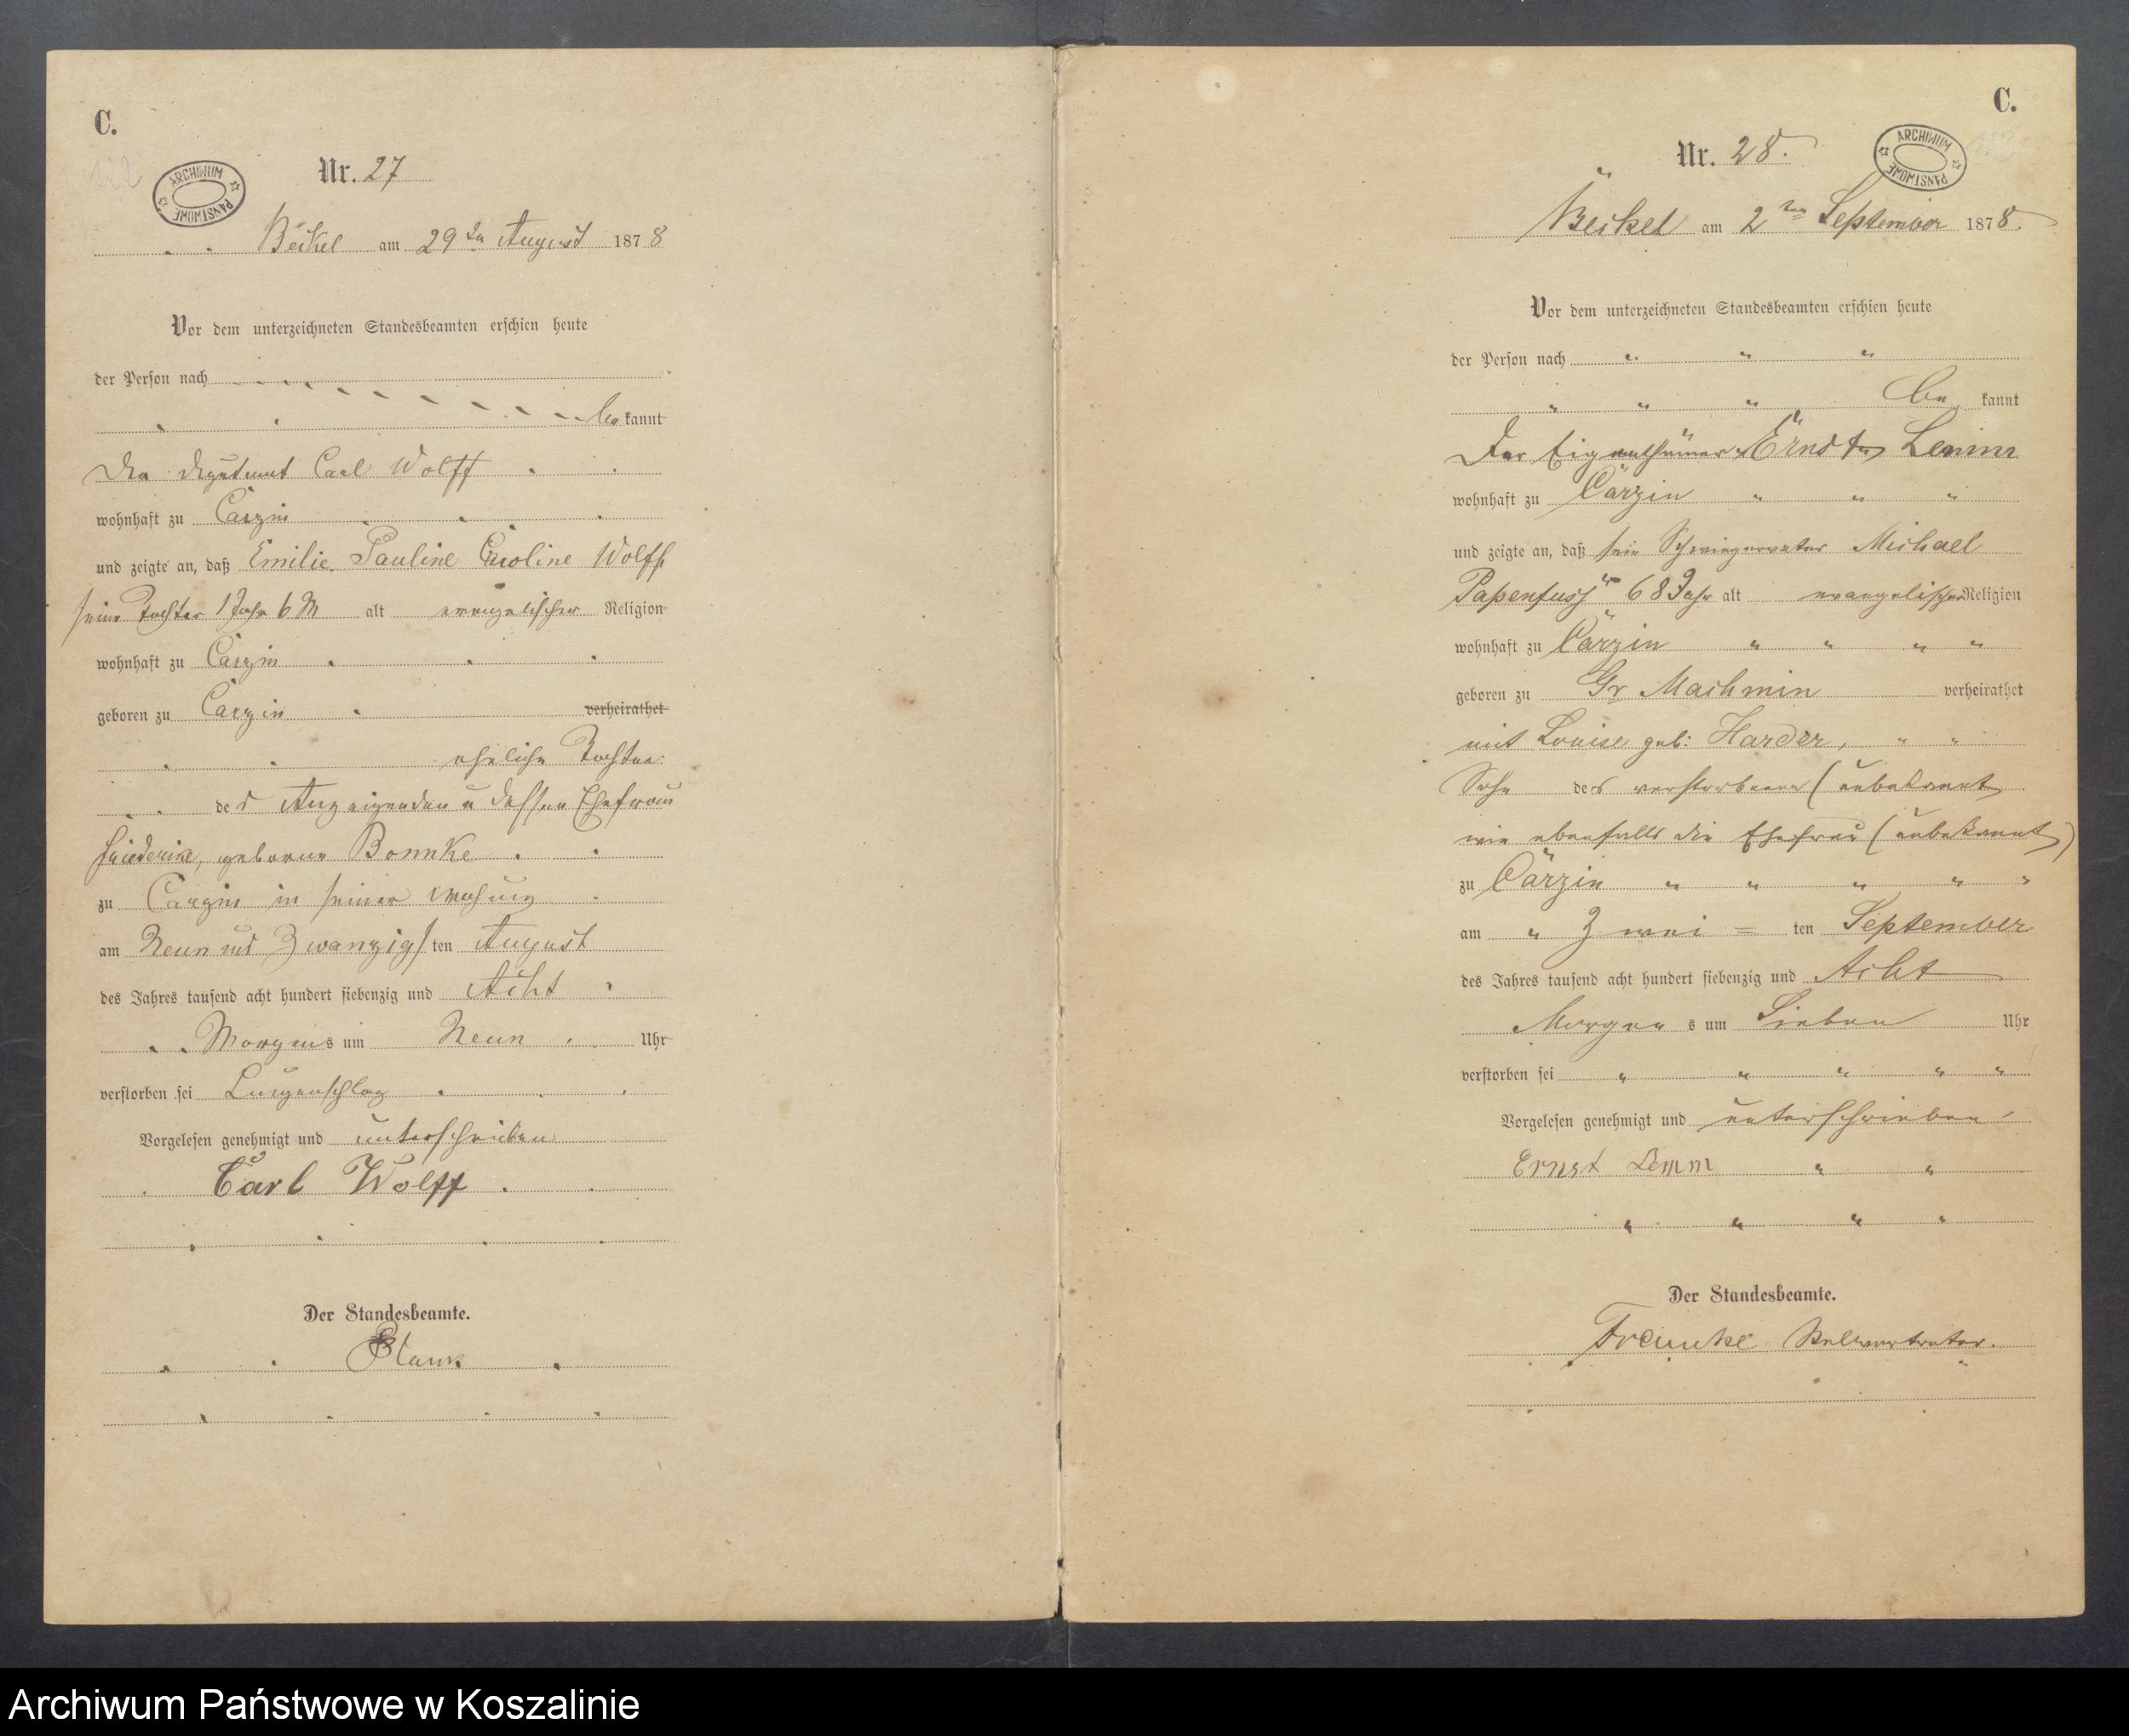 C.
122
ARCHIWUM PAŃSTWOWE
Nr. 27
Beikel am 29 ten August 1878
Vor dem unterzeichneten Standesbeamten erschien heute
der Person nach
be kannt
Der Deputant Carl Wolff
wohnhaft zu Carzin
und zeigte an, daß Emilie Pauline Caroline Wolff
seine Tochter 1 Jahr 6 M alt evangelischer Religion
wohnhaft zu Carzin
geboren zu Carzin verheirathet
eheliche Tochter
des Anzeigenden u dessen Ehefrau
Friederike, geborene Bonnke
zu Carzin in seiner Wohnung
am Neun und Zwanzigsten August
des Jahres tausend acht hundert siebenzig und Acht
Morgens um Neun Uhr
verstorben sei Lungenschlag
Vorgelesen genehmigt und unterschrieben
Carl Wolff
Der Standesbeamte.
C.
Nr. 28.
ARCHIWUM PAŃSTWOWE
Beikel am 2 ten September 1878.
Vor dem unterzeichneten Standesbeamten erschien heute
der Person nach " " "
" " " be kannt
Der Eigenthümer Ernst Lemm
wohnhaft zu Carzin " " "
und zeigte an, daß sein Schwiegervater Michael
Papenfuss 68 Jahr alt evangelischer Religion
wohnhaft zu Carzin " " " "
geboren zu Gr Machmin verheirathet
mit Louise geb: Harder, " "
Sohn des verstorbenen (unbekannt
wie ebenfalls die Ehefrau (unbekannt)
zu Carzin " " " " "
am " Zwei = ten September
des Jahres tausend acht hundert siebenzig und Acht
Morgens um Sieben Uhr
verstorben sei " " " " "
Vorgelesen genehmigt und unterschrieben
Ernst Lemm " "
" " " "
Der Standesbeamte.
Archiwum Państwowe w Koszalinie